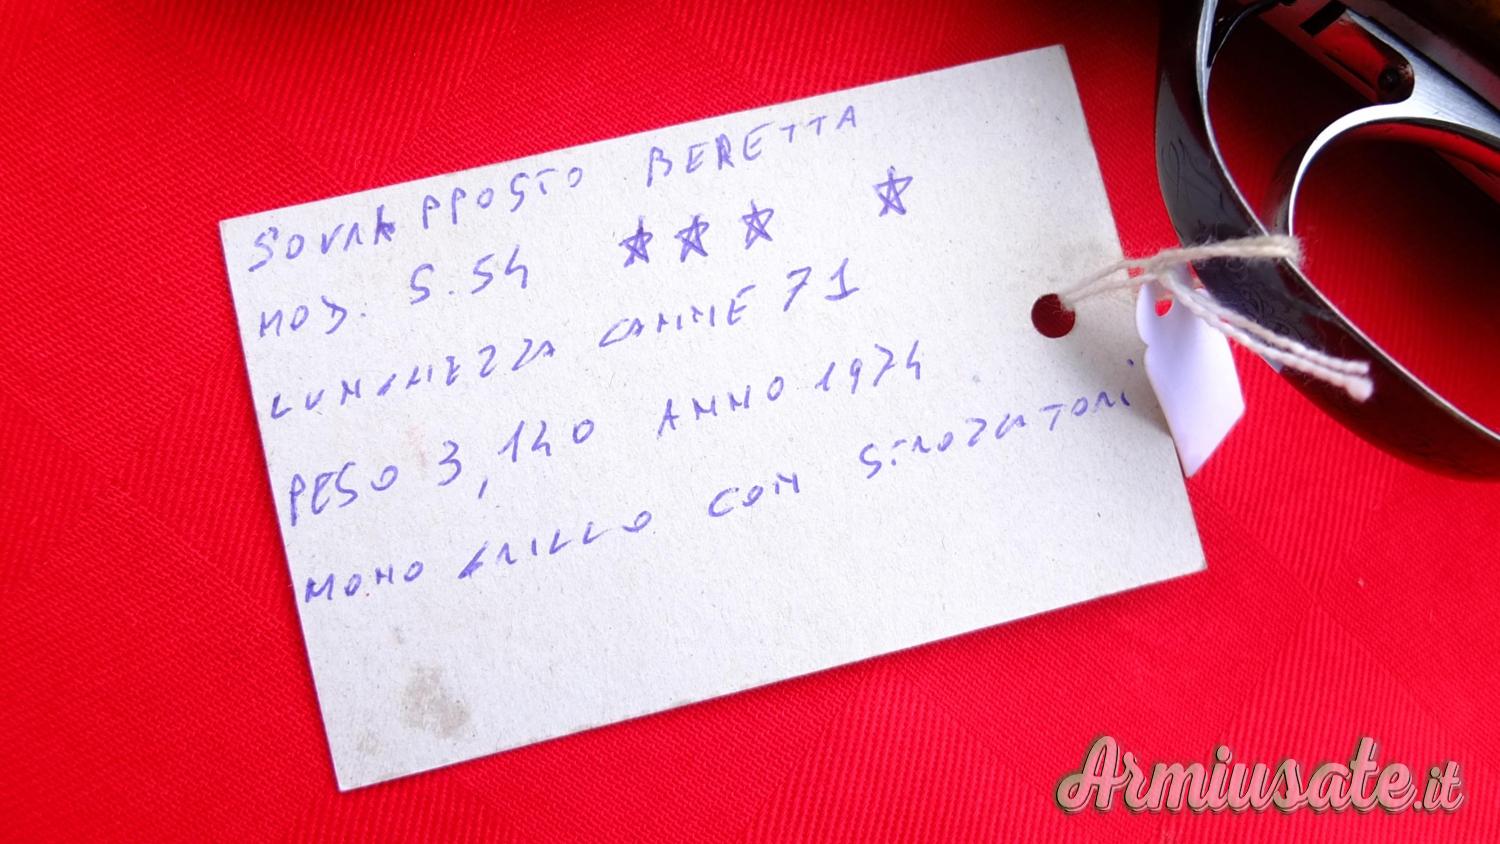 SOVRAPPOSTO BERETTA
MOD. S.54 ☆☆☆ ☆
LUNGHEZZA CANNE 71
PESO 3,140 ANNO 1974
MONO GRILLO CON STROZATORI
Armiusate.it